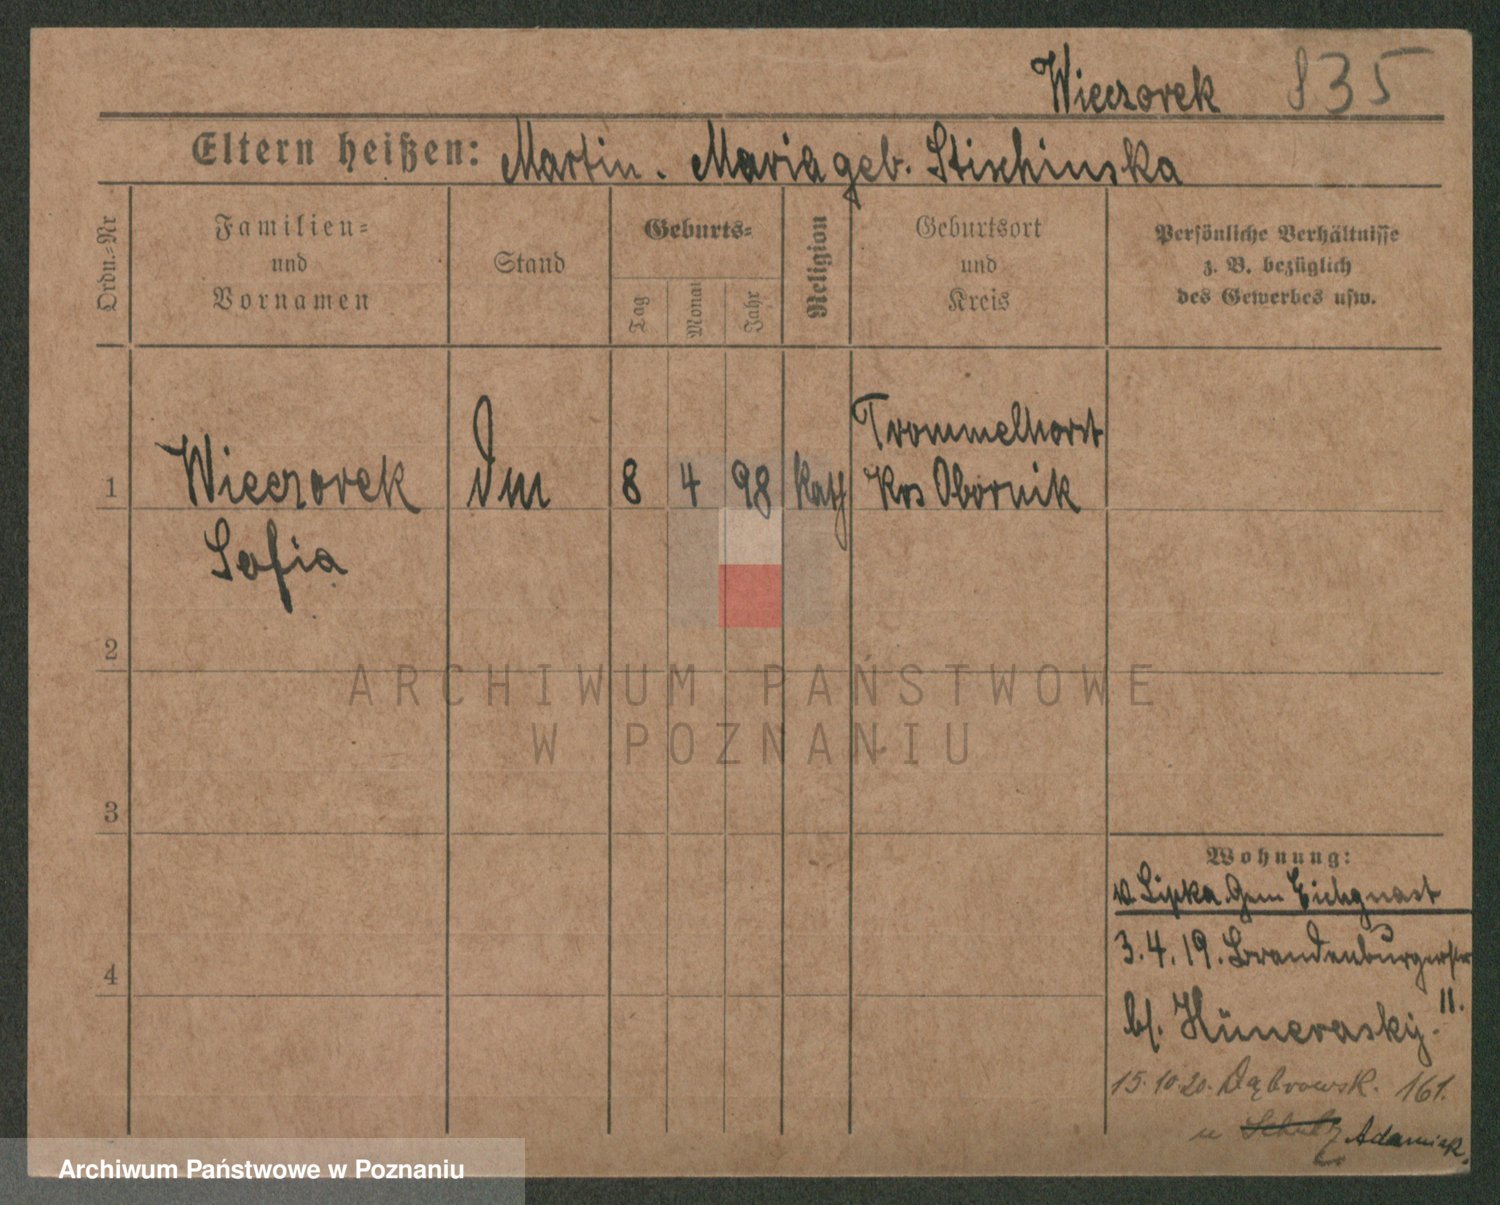 Wieczorek 835
Eltern heißen: Martin. Maria geb. Stischinska
Ordn.-Nr
Familien- und Vornamen
Stand
Geburts-
Tag
Monat
Jahr
Religion
Geburtsort und Kreis
Persönliche Verhältnisse
z. B. bezüglich
des Gewerbes usw.
Trommelhorst
1 Wieczorek 8 4 98 Kath Krs Obornik
Sofia
2
ARCHIWUM PAŃSTWOWE
W POZNANIU
3
Wohnung:
v. Lipka Gem Eichquast
3.4.19. Brandenburgerstr
11.
4
b/. Hüneraskij.
15.10.20. Dąbrowsk. 161.
u Schulz Adamiak.
Archiwum Państwowe w Poznaniu